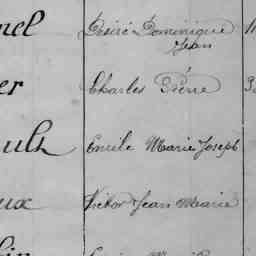 nel Désiré Dominique 11
Jean
er Charles Pierre
ault Emile Marie Joseph
ux Victor Jean Marie